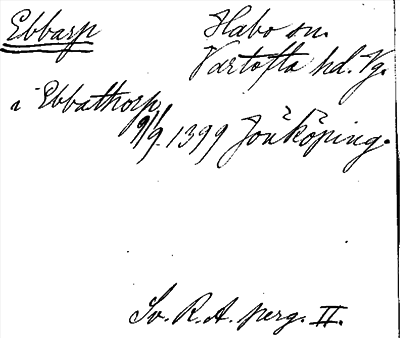 Ebbarp
Habo sn.
Vartofta hd. Vg.
i Ebbathorp
9/9. 1399 Jönköping.
Sv. R. A. perg. II.